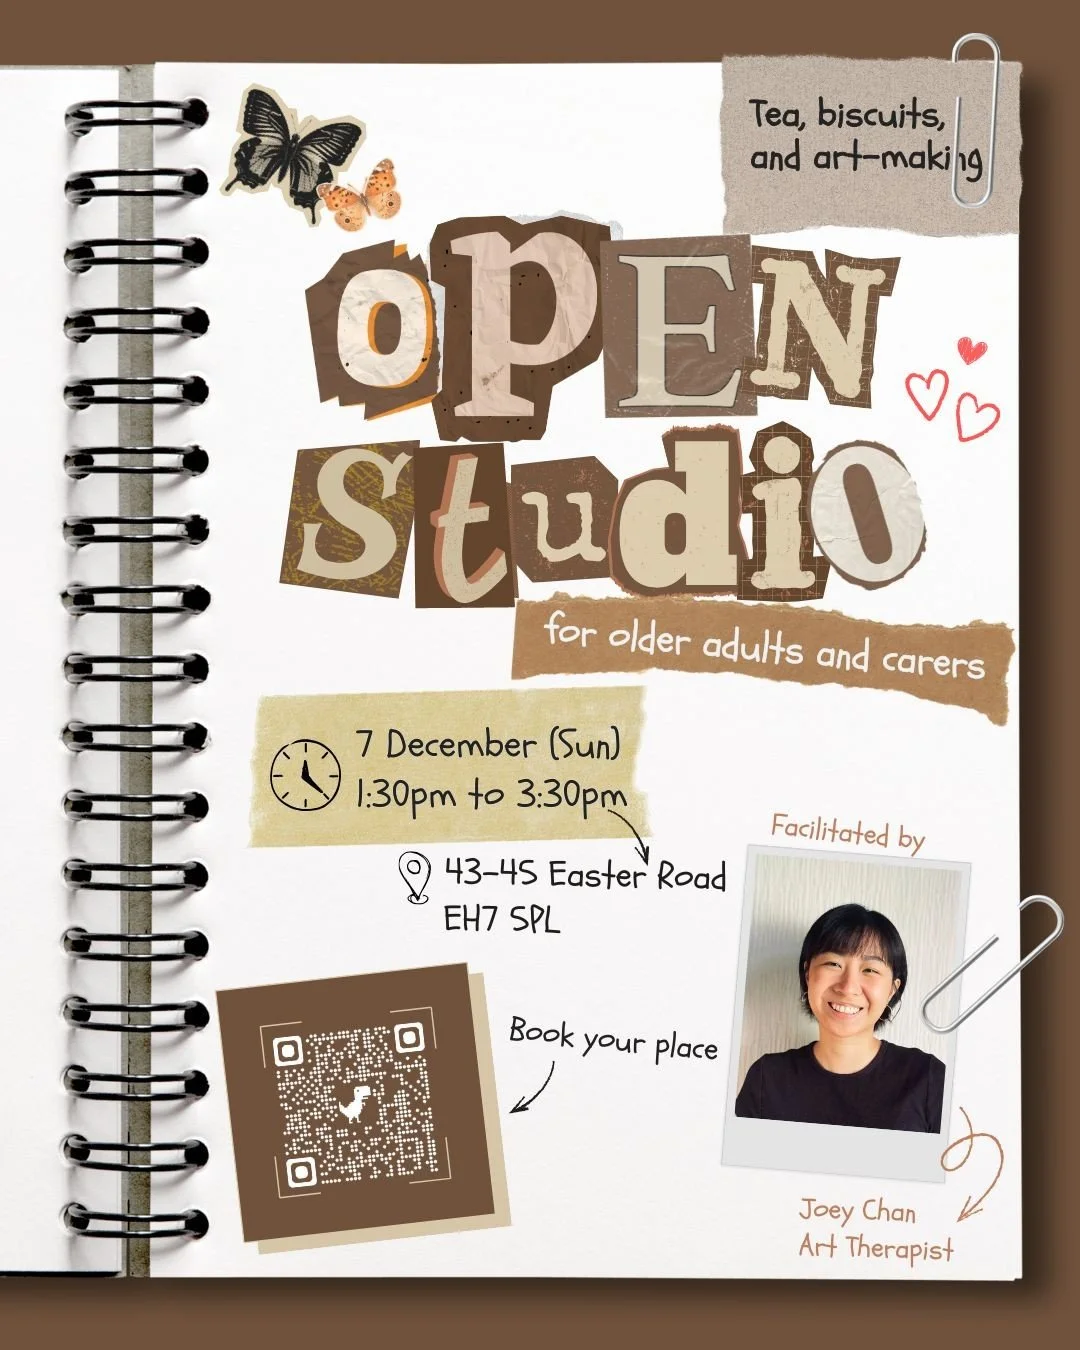 Tea, biscuits,
and art-making
OPEN
Studio
for older adults and carers
7 December (Sun)
1:30pm to 3:30pm
43-45 Easter Road
EH7 5PL
Facilitated by
Book your place
Joey Chan
Art Therapist